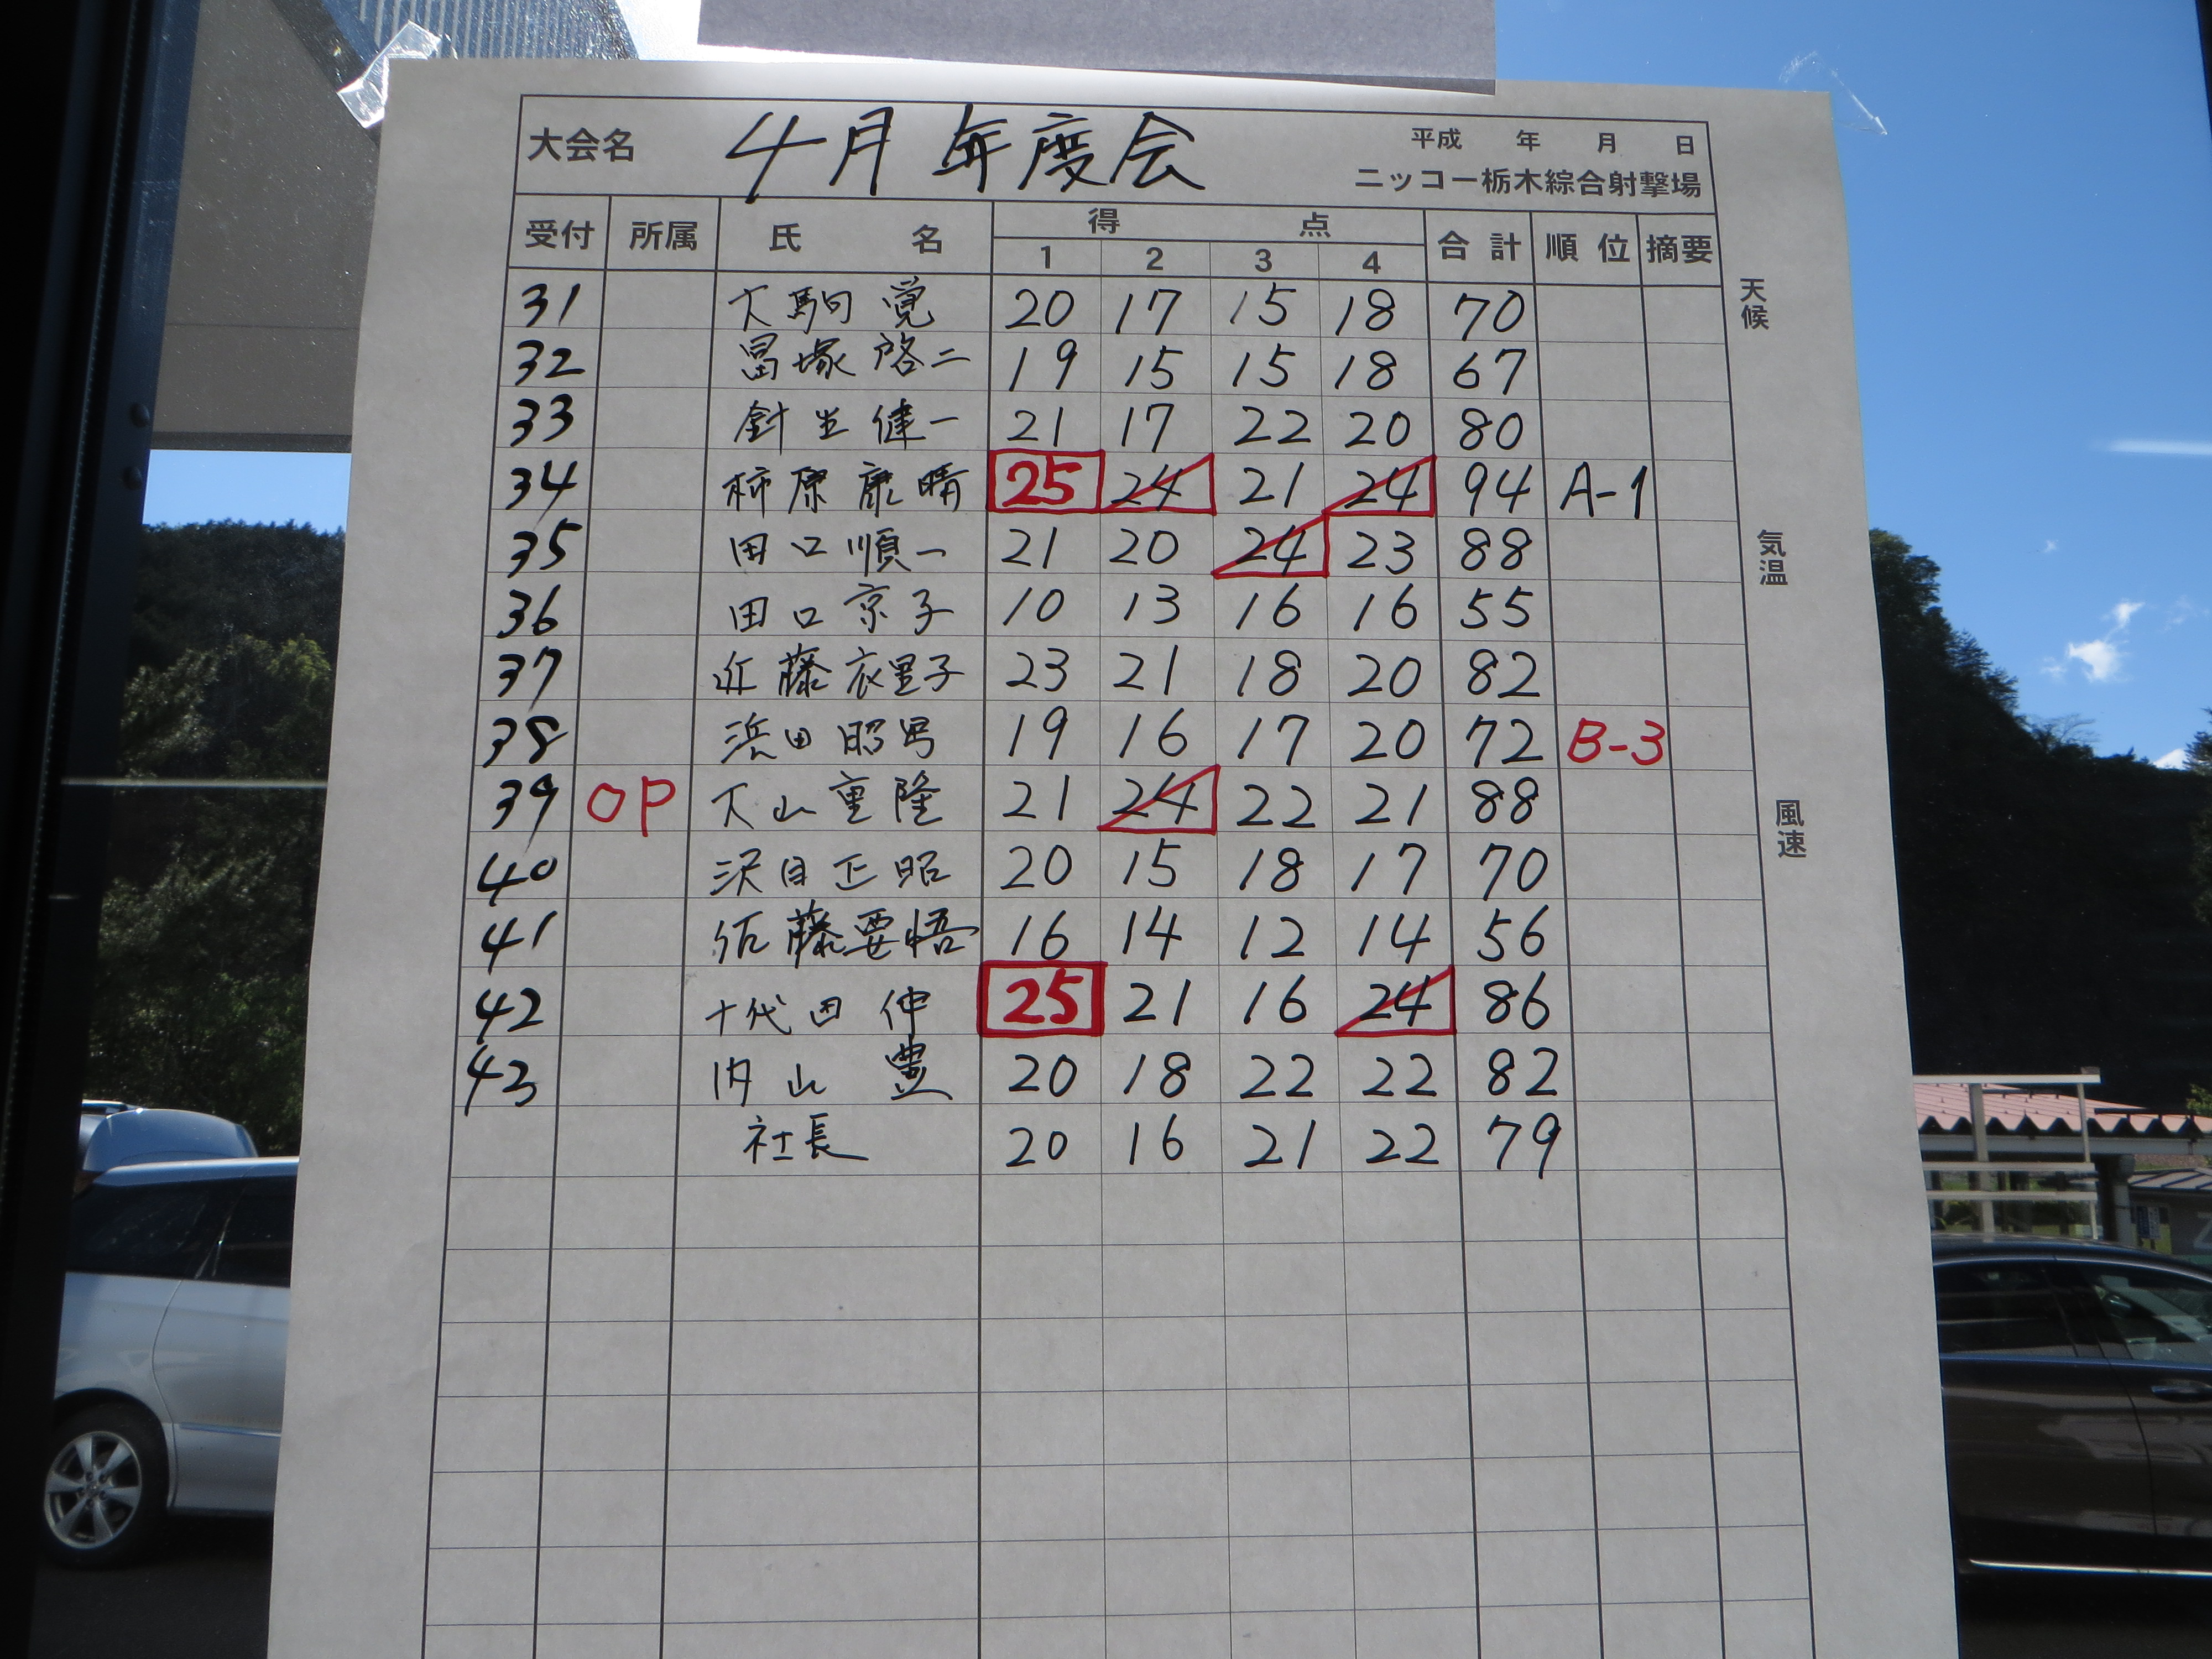 大会名 4月 年度会 平成 年 月 日
ニッコー栃木綜合射撃場
受付 所属 氏 名 得 点 合計 順位 摘要
1 2 3 4
31 大駒 覚 20 17 15 18 70
32 冨塚 啓二 19 15 15 18 67
33 針生 健一 21 17 22 20 80
34 柿原 康晴 25 24 21 24 94 A-1
35 田口 順一 21 20 24 23 88
36 田口 京子 10 13 16 16 55
37 近藤 衣里子 23 21 18 20 82
38 浜田 昭 19 16 17 20 72 B-3
39 OP 大山 重隆 21 24 22 21 88
40 沢目 正昭 20 15 18 17 70
41 佐藤 要悟 16 14 12 14 56
42 十代田 仲 25 21 16 24 86
43 内山 豊 20 18 22 22 82
社長 20 16 21 22 79
天候
気温
風速